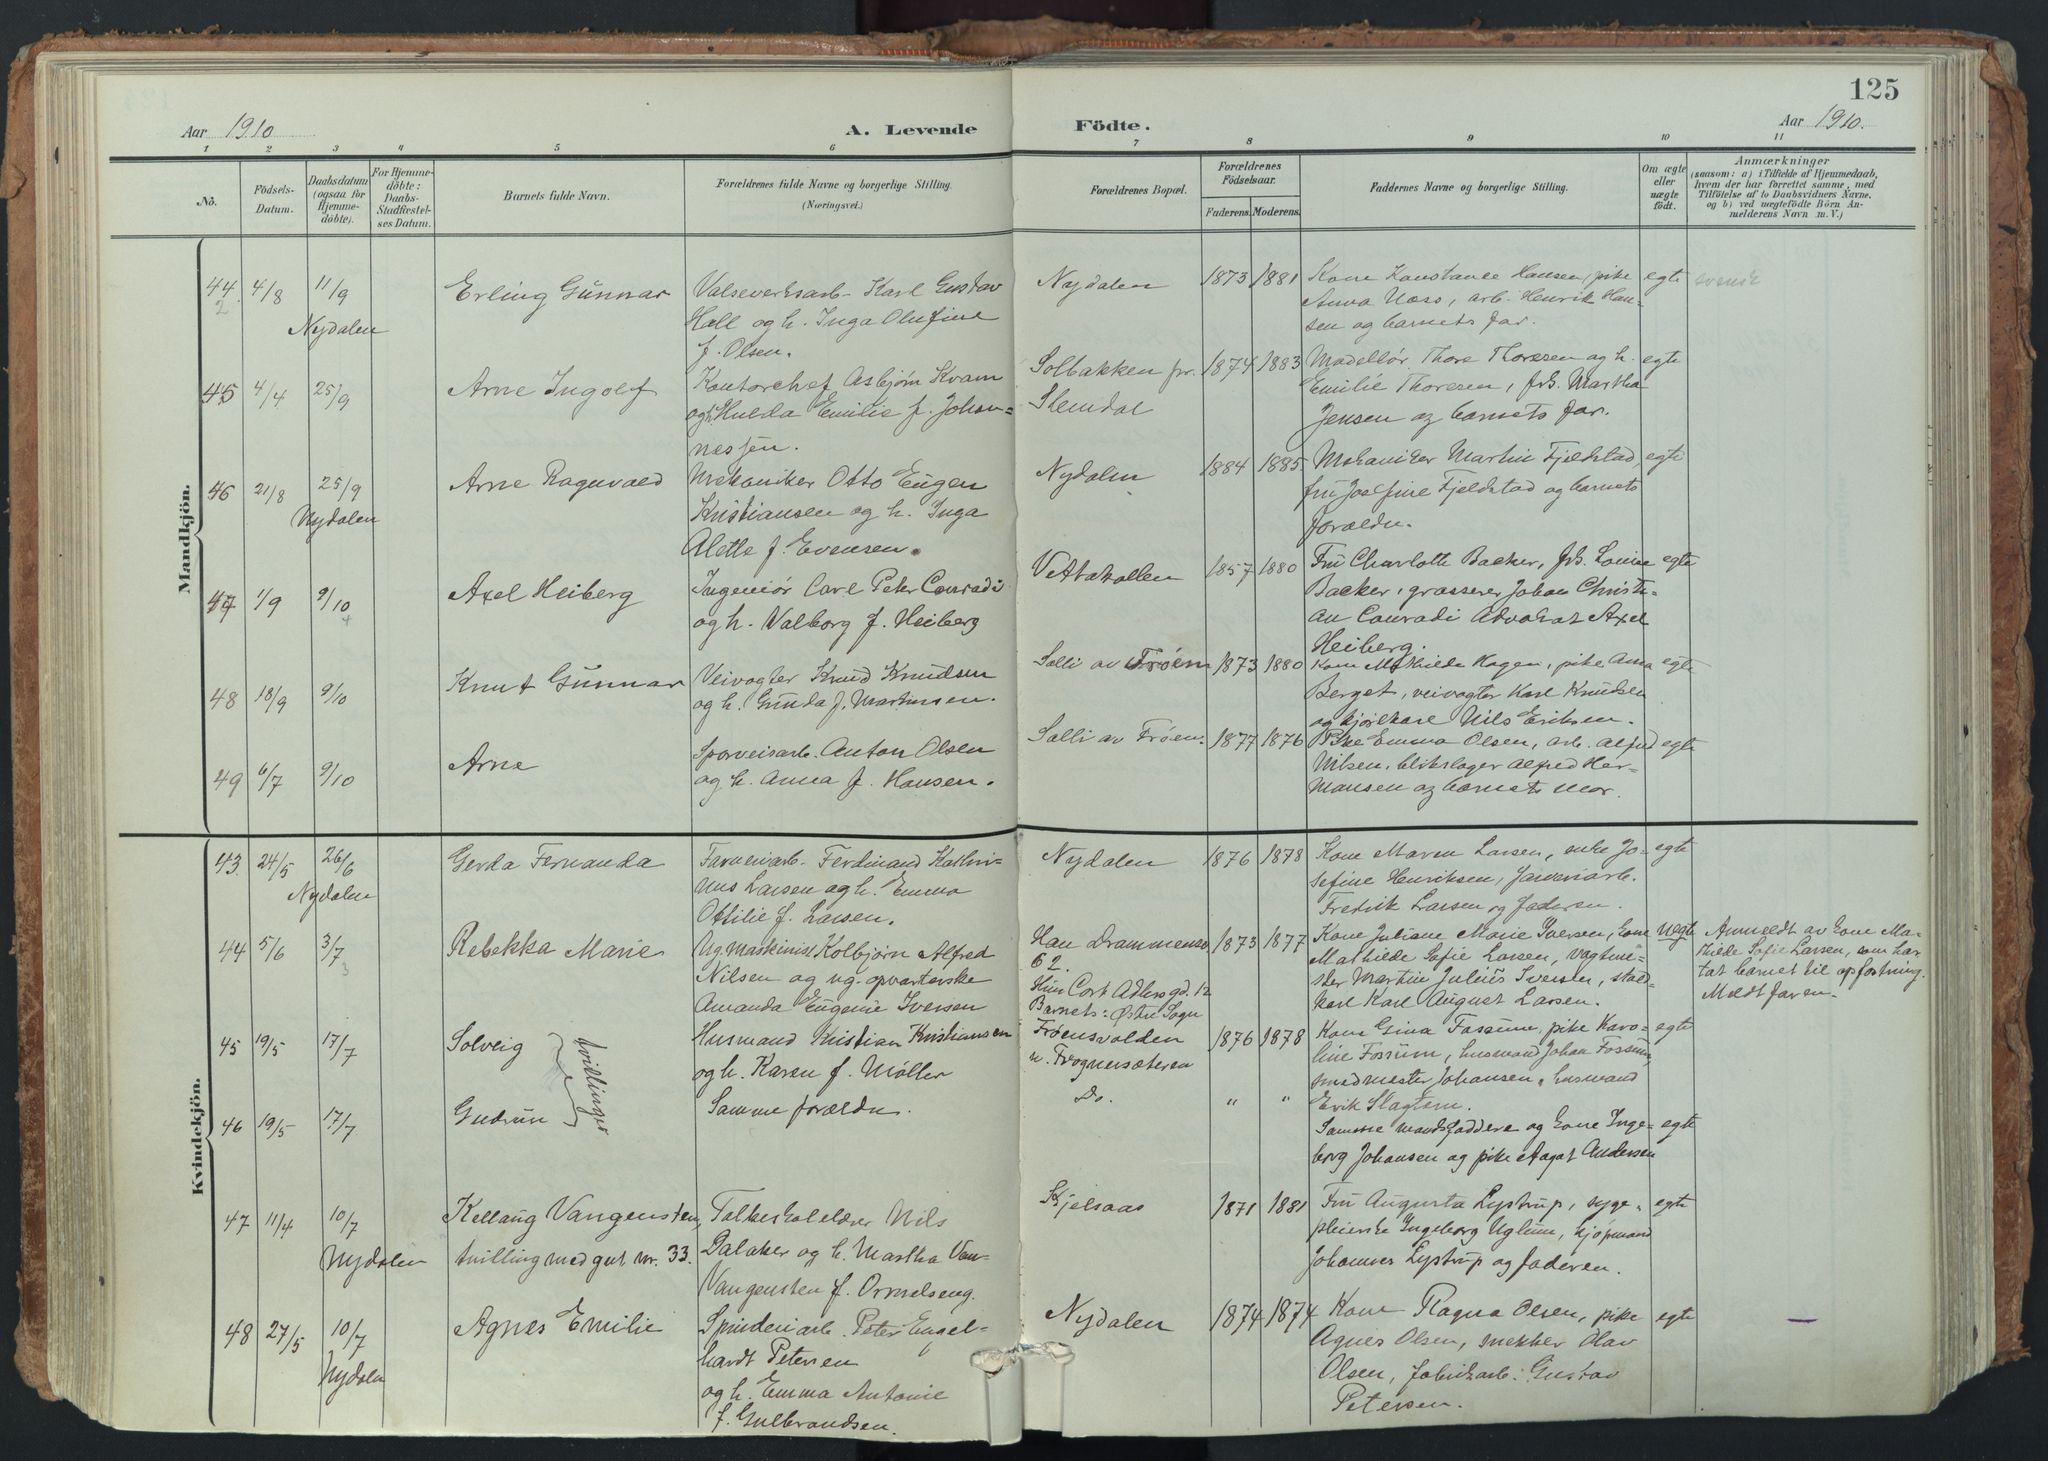 125
Aar 1910
A. Levende
Födte.
Aar 1910.
1 2 3 4 5 6 7 8 9 10 11
No.
Födsels-
Datum.
Daabsdatum
(ogsaa for
Hjemme-
döbte).
For Hjemme-
döbte:
Daabs-
Stadfæstel-
ses Datum.
Barnets fulde Navn.
Forældrenes fulde Navne og borgerlige Stilling.
(Næringsvei.)
Forældrenes Bopæl.
Forældrenes
Födselsaar.
Faderens. Moderens.
Faddernes Navne og borgerlige Stilling.
Om ægte
eller
uægte
födt.
Anmærkninger
(saasom: a) i Tilfælde af Hjemmedaab,
hvem der har forrettet samme, med
Tilföielse af to Daabsvidners Navne,
og b) ved uægtefödte Börn An-
melderens Navn m. V.)
Mandkjön.
44 4/8 11/9 Erling Gunnar Valseverksarb. Karl Gustav Nydalen 1873 1881 Kone Konstance Hansen, pike egte svensk
2 Nydalen Hall og h. Inga Olufine Anna Næss, arb. Henrik Han-
f. Olsen. sen og barnets far.
45 4/4 25/9 Arne Ingolf Kontorchef Asbjørn Kvam Solbakken pr. 1874 1883 Modellør Thore Thoresen og h. egte
og h. Hulda Emilie f. Johan- Slemdal Emilie Thoresen, frk. Martha
nessen. Jensen og barnets far.
46 21/8 25/9 Arne Ragnvald Mekaniker Otto Eugen Nydalen 1884 1885 Mekaniker Martin Fjeldstad, egte
Nydalen Kristiansen og h. Inga fru Josefine Fjeldstad og barnets
Alette f. Evensen. forældre.
47 1/9 9/10 Axel Heiberg Ingeniør Carl Peter Conradi Vettakollen 1857 1880 Fru Charlotte Backer, frk. Louise egte
og h. Valborg f. Heiberg Backer, grosserer Johan Christi-
an Conradi Advokat Axel
Heiberg.
48 18/9 9/10 Knut Gunnar Veivogter Knud Knudsen Solli av Frøen 1873 1880 Kone Mathilde Hagen, pike Anna egte
og h. Gunda f. Martinsen. Berget, veivogter Karl Knudsen
og kjørekarl Nils Eriksen.
49 6/7 9/10 Arne Sporveisarb. Anton Olsen Solli av Frøen. 1877 1876 Pike Emma Olsen, arb. Alfred egte
og h. Anna f. Hansen. Nilsen, blikslager Alfred Her-
mansen og barnets mor.
Kvindekjön.
43. 24/5 26/6 Gerda Fernanda Farveriarb. Ferdinand Karlin- Nydalen 1876 1878 Kone Maren Larsen, enke Jo- egte
Nydalen ius Larsen og h. Emma sefine Henriksen, farveriarb.
Ottilie f. Larsen. Fredrik Larsen og faderen.
44 5/6 3/7 Rebekka Marie Ug. maskinist Kolbjørn Alfred Han Drammensv 1873 1877 Kone Juliane Marie Iversen, kone uegte Anmeldt av kone Ma-
Nilsen og ug. opvarterske 62. Mathilde Sofie Larsen, vagtme- thilde Sofie Larsen, som har
Amanda Eugenie Iversen Hun Cort Adlersgd. 12 ster Martin Julius Iversen, stald- tat barnet til opfostring.
Barnets: Østre Sogn karl Karl August Larsen. Meldt faren.
45 19/5 17/7 Solveig tvillinger Husmand Kristian Kristiansen Frøensvolden 1876 1878 Kone Gina Fossum, pike Karo- egte
og h. Karen f. Møller v. Frognersæteren line Fossum, husmand Johan Fossum,
smedmester Johansen, husmand
Erik Slagtern.
46 19/5 17/7 Gudrun Samme forældre. Do. " " Samme mandsfaddere og kone Inge- egte
borg Johansen og pike Aagot Andersen
47 11/4 10/7 Kellaug Vangensten, Folkeskolelærer Nils Kjelsaas 1871 1881 Fru Augusta Lystrup, syge- egte
Nydalen tvilling med gut nr. 33. Dalaker og h. Martha Van- pleierske Ingeborg Uglum, kjøpmand
Vangensten f. Ormelseng. Johannes Lystrup og faderen.
48 27/5 10/7 Agnes Emilie Spinderiarb. Peter Engel- Nydalen 1874 1874 Kone Ragna Olsen, pike egte —
Nydalen hardt Petersen Agnes Olsen, snekker Olav
og h. Emma Antonie Olsen, fabrikarb. Gustav
f. Gulbrandsen. Petersen.